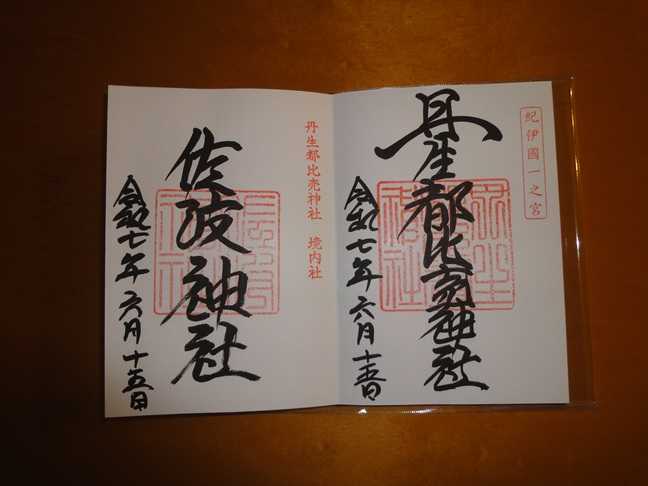 紀伊國一之宮
丹生都比売神社
令和七年六月十五日
丹生都比売神社 境内社
佐波神社
令和七年六月十五日